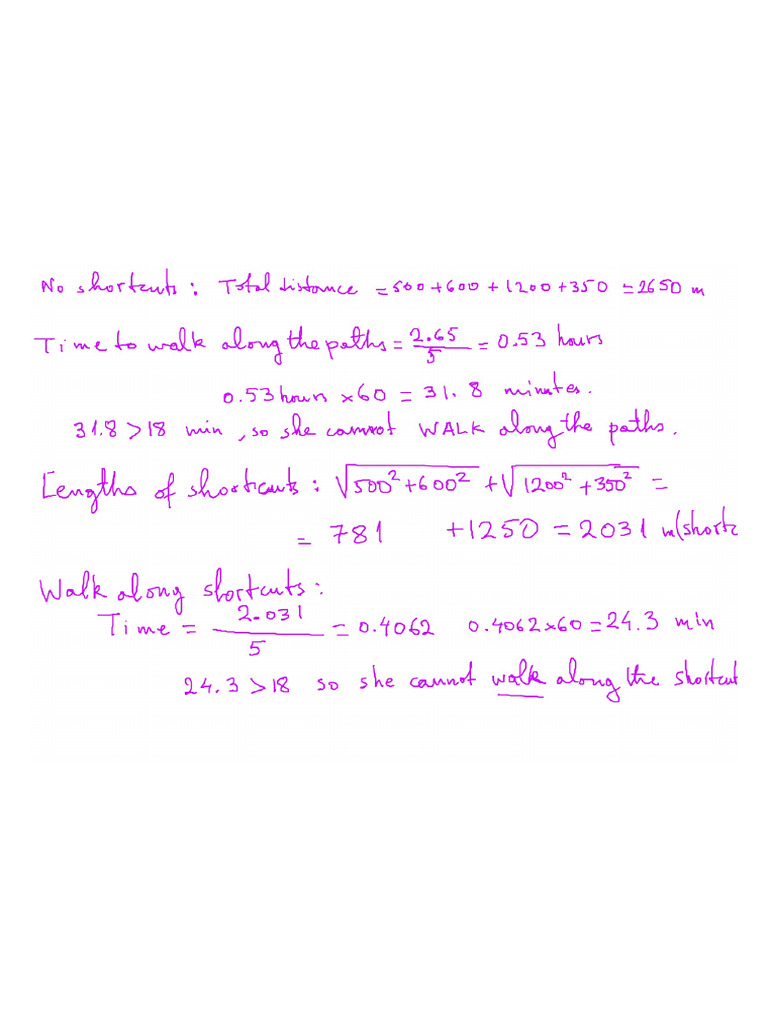 No shortcuts : Total distance = 500+600 + 1200+350 = 2650 m
Time to walk along the paths = 2.65/5 = 0.53 hours
0.53 hours ×60 = 31.8 minutes.
31.8 > 18 min , so she cannot WALK along the paths.
Lengths of shortcuts : √500²+600² + √1200²+350² =
= 781 +1250 = 2031 m(shortc
Walk along shortcuts :
Time = 2.031/5 = 0.4062 0.4062×60 = 24.3 min
24.3 > 18 so she cannot walk along the shortcut